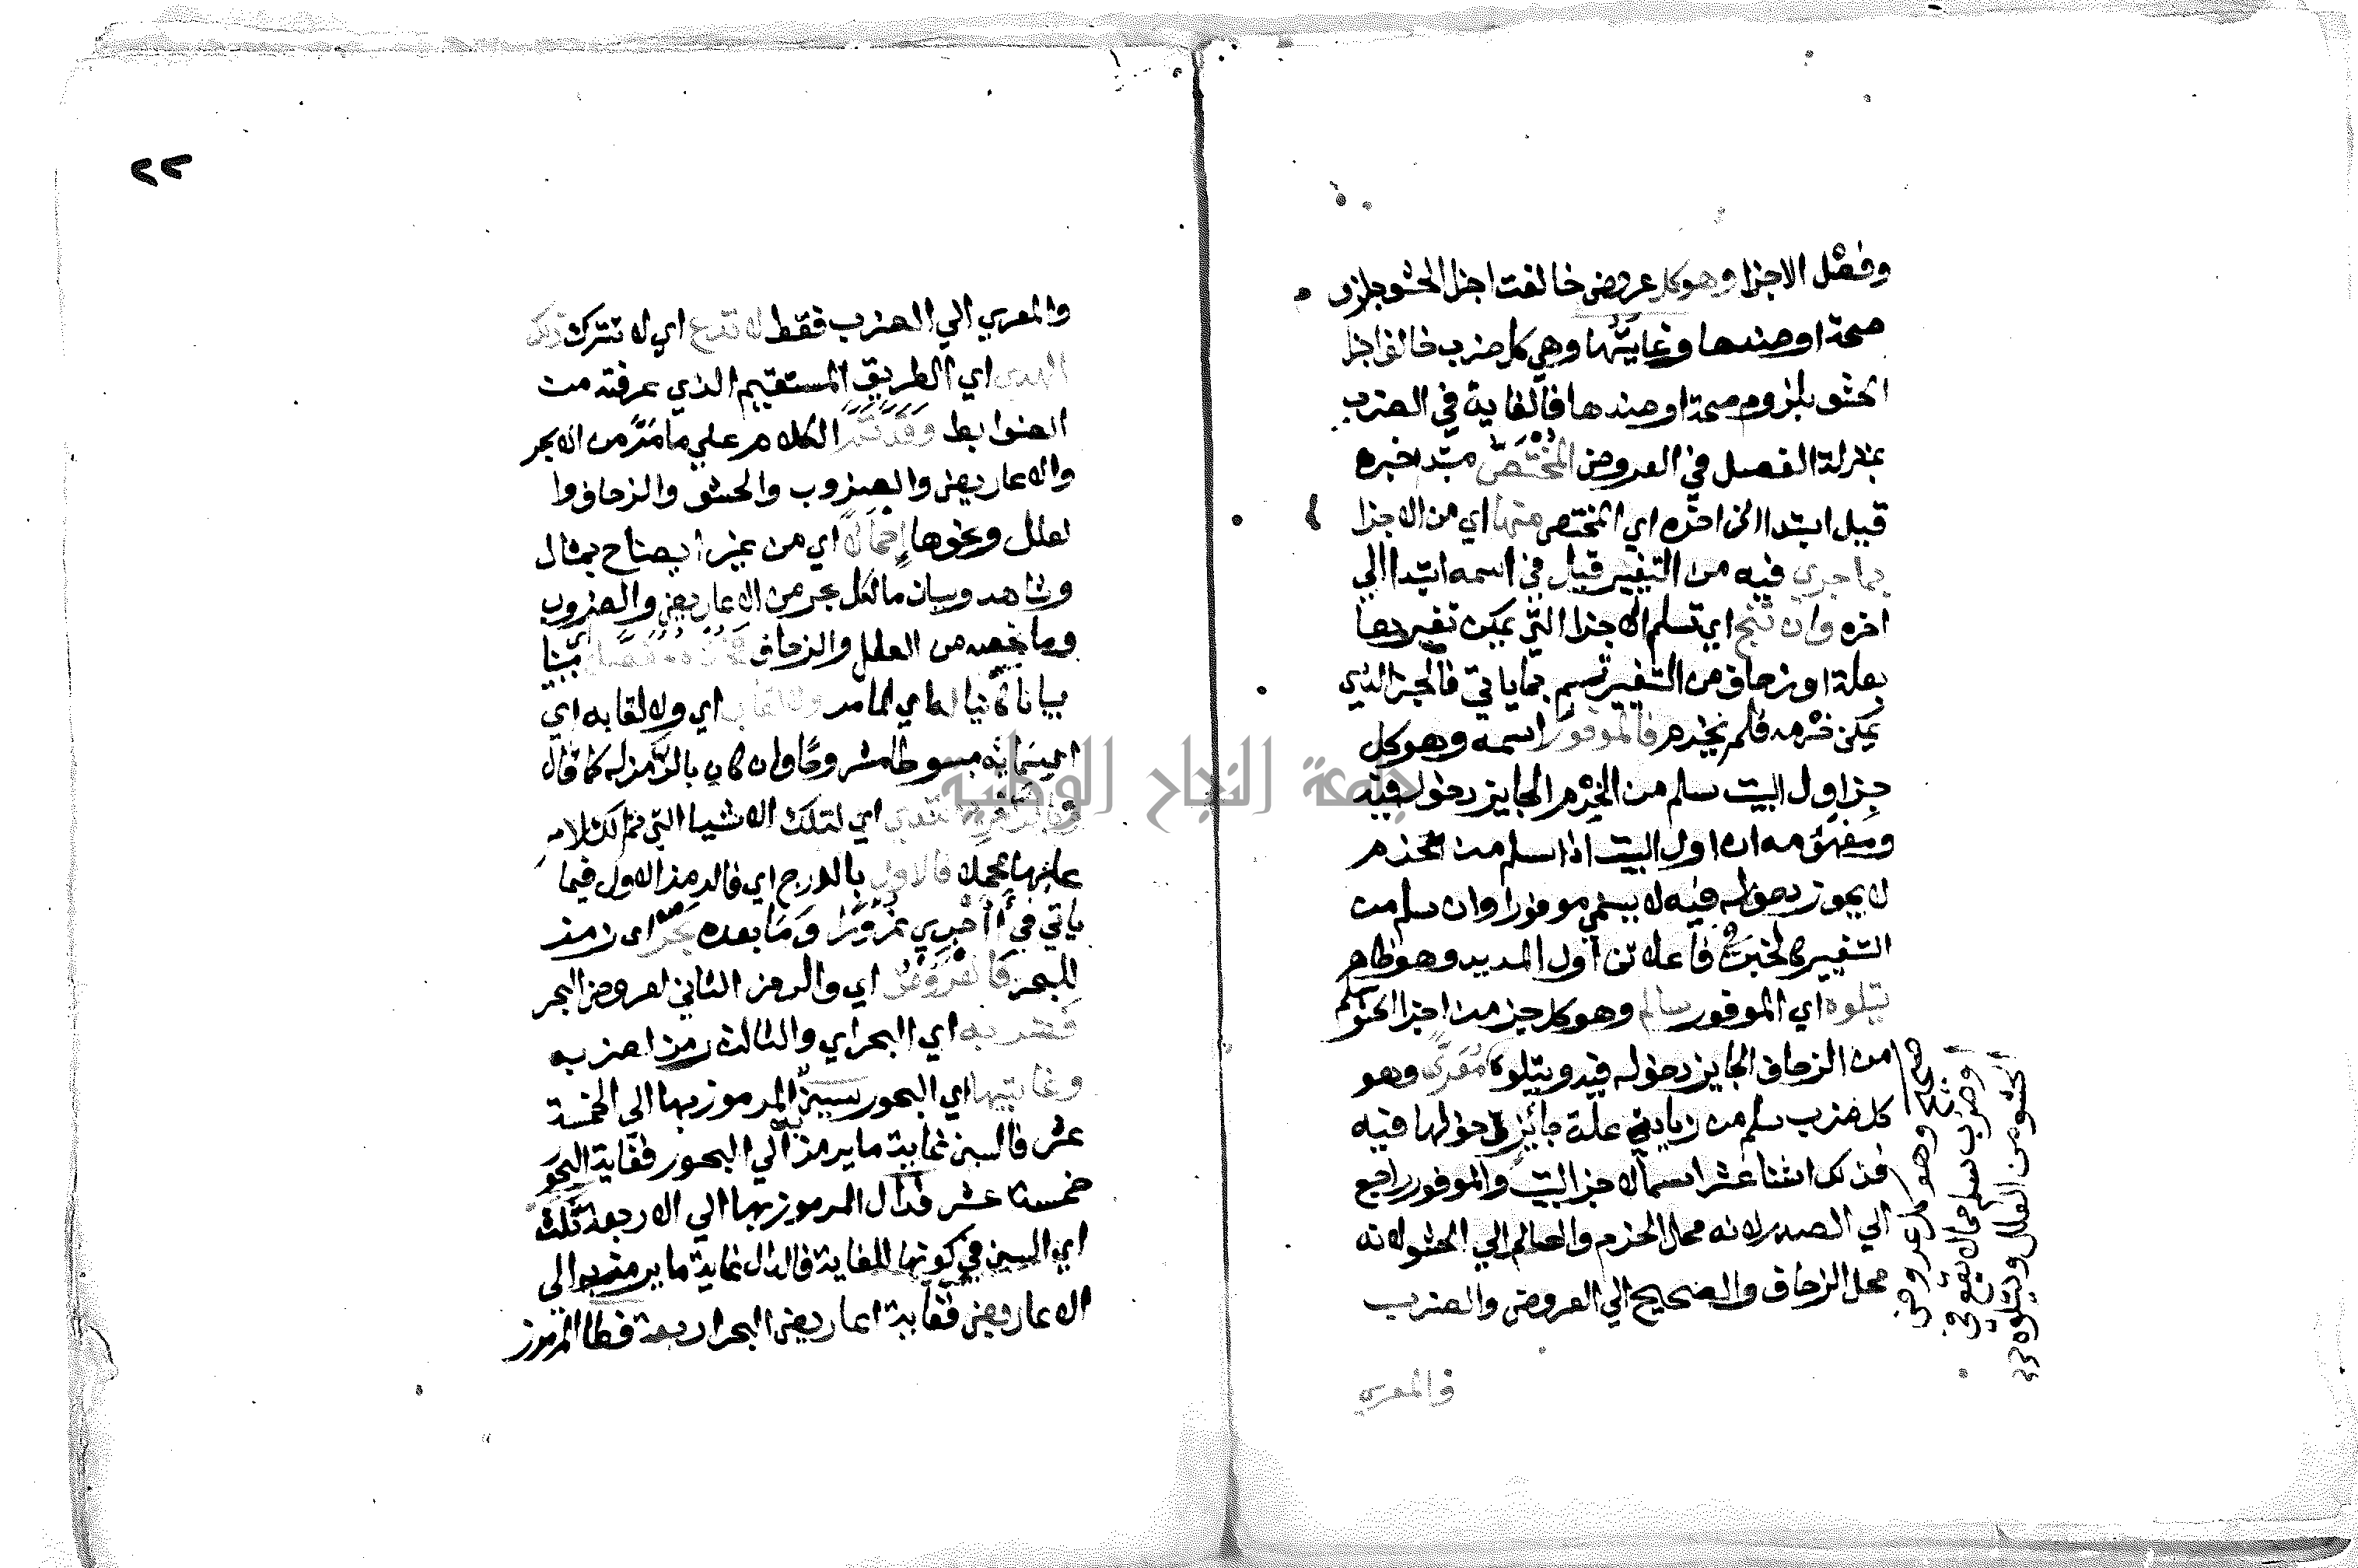 وفصل الاجزا وهو كل عروض خالفت اجزا الحشو بلازم
صحة او ضدها وغايتها وهي كل ضرب خالف اجزا
الحشو بلزوم صحة او ضدها فالغاية في الضرب
بمنزلة الفصل في العروض المختص مبتدا خبره
قبل ابتدا الى اخره اي المختص منها اي من الاجزا
بما جري فيه من التغيير قيل في اسمه ابتدا الي
اخره وان تنج اي تسلم الاجزا التي يمكن تغييرها
بعلة او زحاف من التغيير تسم بما ياتي فالجزا الذي
يمكن خرمه فلم يخرم فالموفور اسمه وهو كل
جزا ول البيت سلم من الخرم الجايز دخوله فيه
ومفهومه ان اول البيت اذا سلم من الخرم
لا يجوز دخوله فيه لا يسمي موفورا وان سلم من
التغيير كالخبن في فاعلاتن اول المديد وهو ظاهر
يتلوه اي الموفور سالم وهو كل جز من اجزا الحشو سلم
من الزحاف الجايز دخوله فيه ويتلوه معري وهو
كل ضرب سلم من زيادة علة جائز دخولها فيه
فذلك اثنا عشر اسما لاجزا البيت والموفور راجع
الي الصدر لانه محل الخرم والسالم الي الحشو لانه
محل الزحاف والصحيح الي العروض والضرب
والمعري
صحيح وهو كل عروض
او ضرب سلم مما لا يقع في
الحشو من العلل ويتلوه
جامعة النجاح الوطنية
٢٢
والمعري الي الضرب فقط لا تدع اي لا تترك ذلك
الهدي اي الطريق المستقيم الذي عرفته من
الضوابط وقد تم الكلام علي ما مر من الابحر
والاعاريض والضروب والحشو والزحاف وا
لعلل ونحوها اجمالا اي من غير ايضاح بمثال
وشاهد وبيان ما لكل بحر من الاعاريض والضروب
وما يخصه من العلل والزحاف مبينا
بيانا اي ولالقابه اي
مبسوطا مشروحا وان كان بالرمز له كما قال
اي لتلك الاشيا التي تم الكلام
عليها مجملا فالاول بالدرج اي فالرمز الاول فيما
ياتي في ااجري وما بعده بحر اي رمز
للبحر فالعروض اي والرمز الثاني لعروض البحر
فضربه اي البحر اي والثالث رمز لضربه
وغايتها اي البحور سين المرموز بها الي الخمسة
عشر فالسين غاية ما يرمز به الي البحور فغاية البحور
خمسة عشر فدال المرموز بها الي الاربعة تلت
اي السين في كونها للغاية فالدال غاية ما يرمز به الي
الاعاريض فغاية اعاريض البحر اربعة فطا المرموز